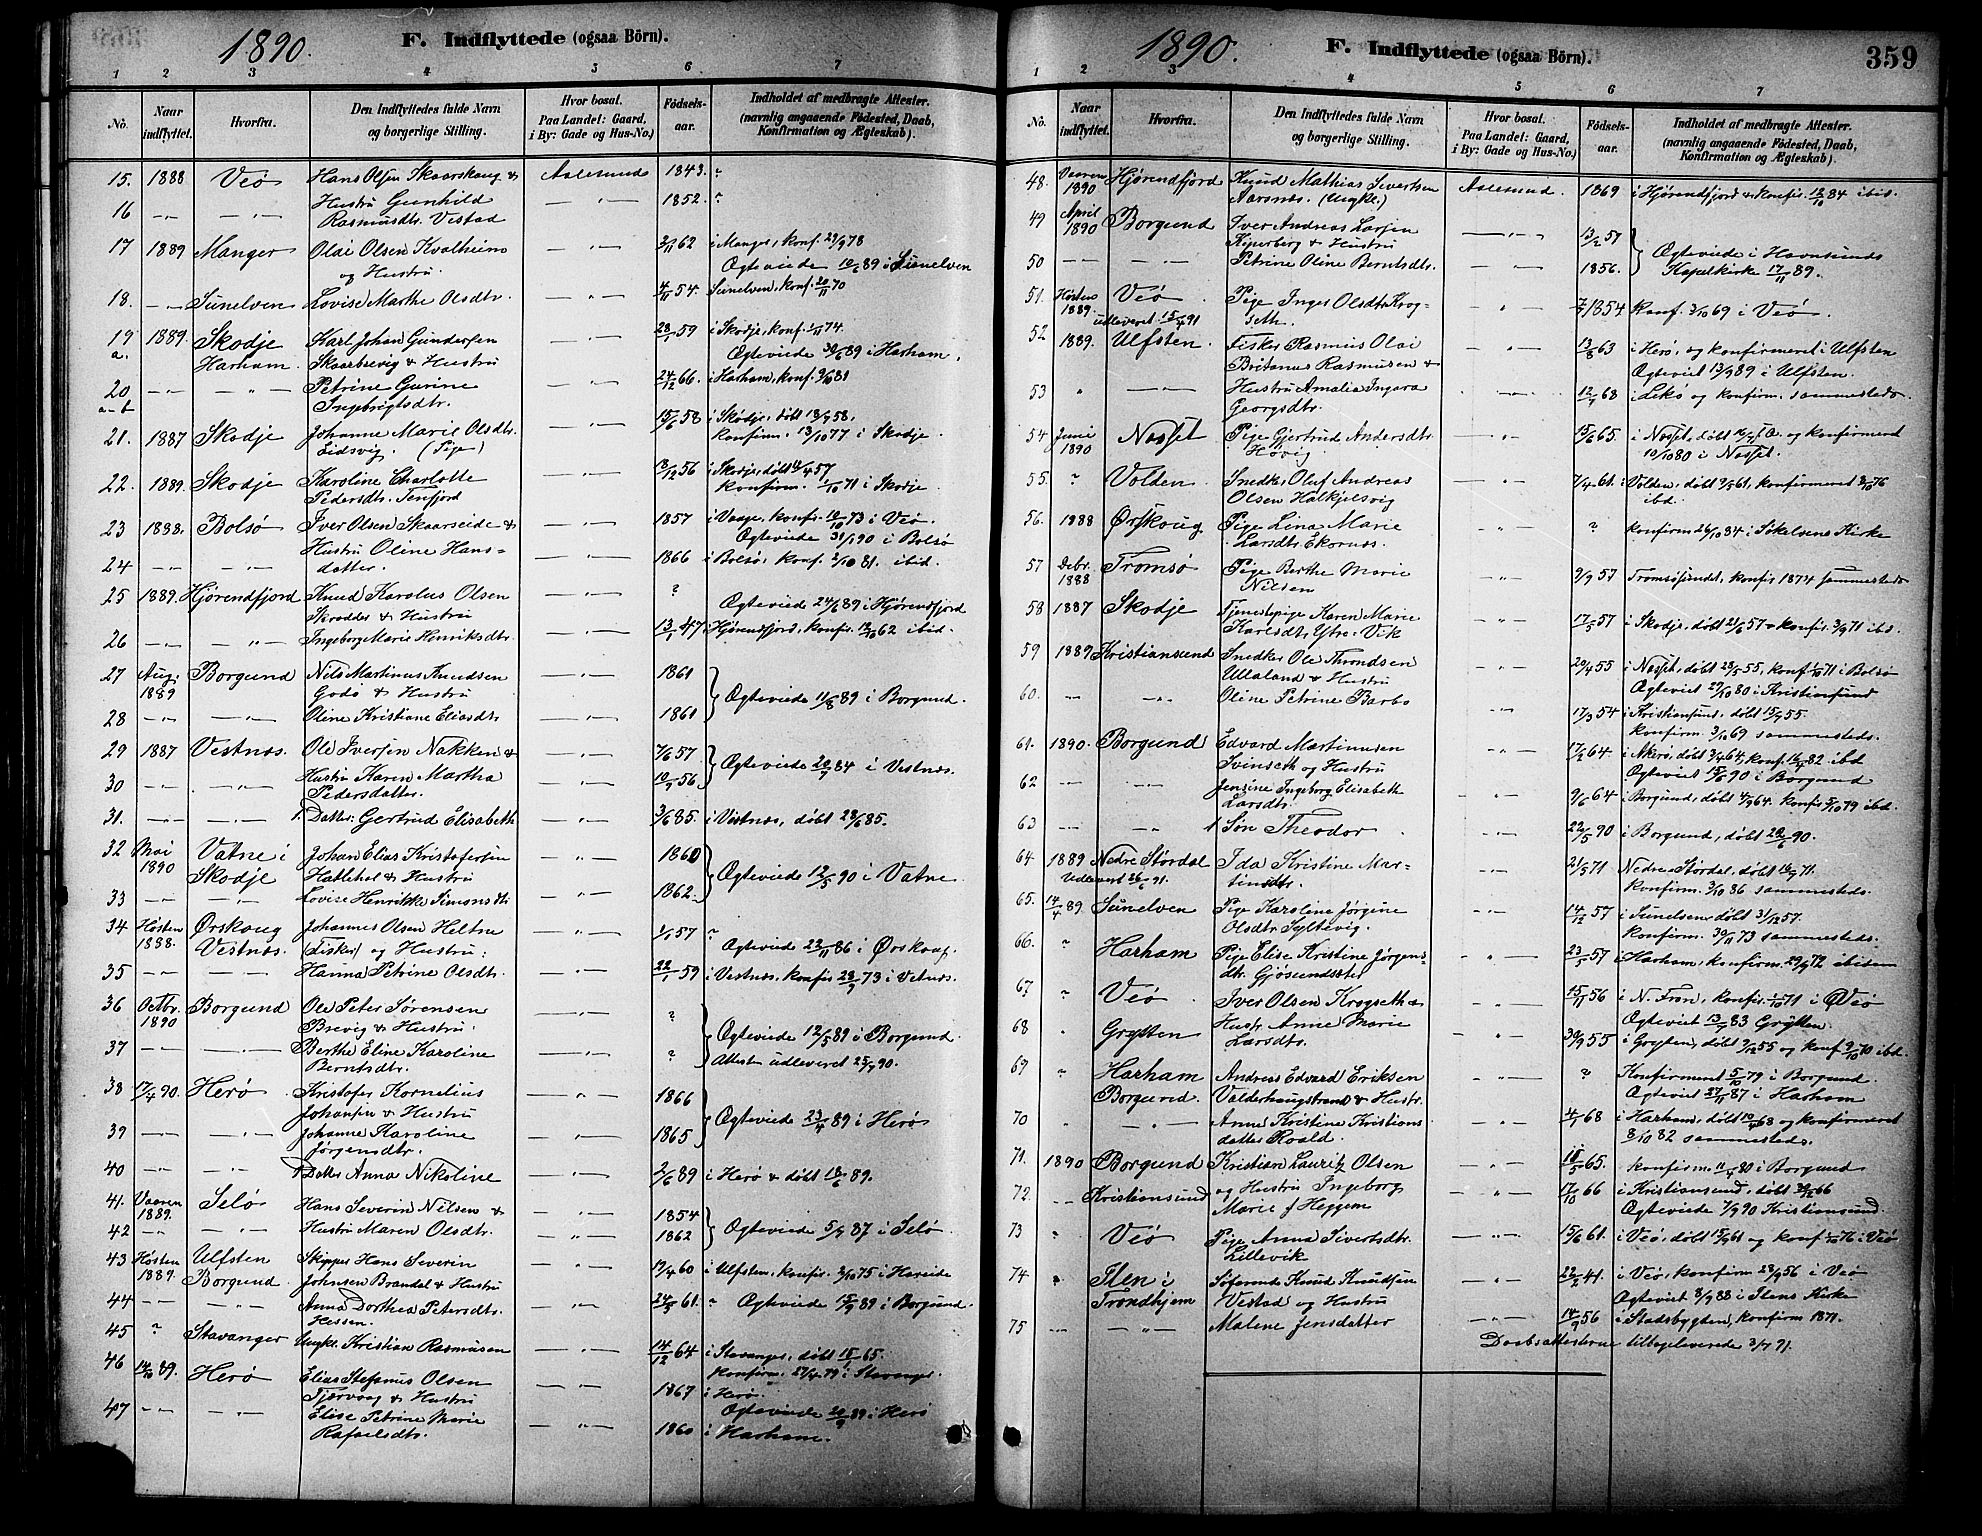 1890. F. Indflyttede (ogsaa Börn).
1 2 3 4 5 6 7
No. Naar indflyttet. Hvorfra. Den Indflyttedes fulde Navn og borgerlige Stilling. Hvor bosat. Paa Landet: Gaard, i By: Gade og Hus-No.) Födsels-aar. Indholdet af medbragte Attester. (navnlig angaaende Födested, Daab, Konfirmation og Ægteskab).
15. 1888 Veö Hans Olsen Skaarskoug & Aalesund 1843. ?
16 —"— —"— Hustru Gunhild —"— 1852. ?
Rasmusdtr. Vestad
17 1889 Manger Olai Olsen Kvalheim —"— 3/11 62 i Manger, konf. 29/9 78
og Hustru Ægteviede 10/6 89 i Sunelven
18. —"— Sunelven Lovise Marthe Olsdtr. —"— 4/11 54. Sunelven, konf. 20/11 70
19 a. 1889. Skodje Karl Johan Gundersen —"— 28/1 59 i Skodje, konf. 1/11 74.
Harham. Skaarbrevig & Hustru Ægteviede 30/6 89 i Harham.
20 a-b —"— —"— Petrine Gurine —"— 24/12 66. i Harham, konf. 9/10 81
Ingebrigtsdtr.
21. 1887 Skodje Johanne Marie Olsdtr. —"— 15/6 58 i Skodje, döbt 18/7 58,
Eidsvig. (Pige) konfirm. 13/10 77 i Skodje.
22. 1889. Skodje Karoline Charlotte —"— 13/12 56 i Skodje, döbt 4/4 57
Pedersdtr. Tenfjord konfirm. 1/10 71 i Skodje.
23 1888. Bolsö Iver Olsen Skaarseide & —"— 1857 i Vaage, konfr. 10/10 73 i Veö.
Hustru Oline Hans- Ægteviede 31/1 90 i Bolsö
24 —"— —"— datter. —"— 1866 i Bolsö, konf. 2/10 81. ibid.
25 1889. Hjörendfjord Knud Karolus Olsen —"— ? Ægteviede 24/6 89 i Hjörendfjord
Skrodder & Hustru
26 —"— —"— Ingeborg Marie Henriksdtr. —"— 13/1 47 Hjörendfjord, konfir. 12/10 62 ibid.
27 Aug. 1889 Borgund Nils Martinus Knudsen —"— 1861
Godö & Hustru Ægteviede 11/8 89 i Borgund.
28 —"— —"— Oline Kristiane Eliasdtr. —"— 1861
29 1887 Vestnæs. Ole Iversen Nakken & —"— 7/6 57
Hustru Karen Martha Ægteviede 20/7 84 i Vestnæs.
30 —"— —"— Pedersdatter. —"— 10/9 56
31. —"— —"— 1. Datter: Gertrud Elisabeth —"— 3/6 85. i Vestnæs, döbt 28/6 85.
32 Mai 1890 Vatne i Johan Elias Kristofersen —"— 1860
Skodje Hatlehol & Hustru Ægteviede 12/5 90 i Vatne.
33 —"— —"— Lovise Henrikke Simonsdtr —"— 1862.
34 Hösten 1888. Örskoug Johannes Olsen Heltne —"— 1/1 57 ?
Vestnæs (Fisker) og Hustru: Ægteviede 22/11 86 i Örskoug.
35 —"— —"— Hanna Petrine Olsdtr. —"— 22/1 59 i Vestnæs, konfir 28/9 73 i Vetnæs.
36 Octbr. 1890 Borgund Ole Peter Sörensen —"— ?
Brevig & Hustru Ægteviede 12/5 89 i Borgund.
37 —"— —"— Berthe Eline Karoline —"— ? Attester udleveret 25/9 90.
Berntsdtr.
38 17/4 90. Herö Kristofer Kornelius —"— 1866
Johansen & Hustru Ægteviede 23/4 89 i Herö
39 —"— —"— Johanne Karoline —"— 1865
Jörgensdtr.
40 —"— —"— 1 Datter Anna Nikoline —"— 2/6 89 i Herö & döbt 18/6 89.
41. Vaaren 1889. Selö Hans Severin Nilsen & —"— 1854
42 —"— —"— Hustru Maren Olsdtr. —"— 1862 Ægteviede 5/7 87 i Selö
43 Hösten 1889. Ulfsten Skipper Hans Severin —"— 17/4 60 i Ulfsten, konfir. 3/10 75 i Hareide
Borgund. Johnsen Brandal & Hustru
44 —"— —"— Anna Dorthea Petersdtr. —"— 24/5 61. ? Ægteviede 15/9 89 i Borgund.
Hessen.
45 ? Stavanger Ungk. Kristian Rasmusen —"— 14/12 64 i Stavanger, döbt 15/1 65.
konfirm. 27/4 79 i Stavanger
46 14/10 89. Herö Elias Stefanus Olsen —"— 1867 i Herö.
Tjærvaag & Hustru Ægteviede 20/9 89 i Herö
47 —"— —"— Elise Petrine Marie —"— 1860 i Harham.
Rafaelsdtr.
1890. F. Indflyttede (ogsaa Börn). 359
1 2 3 4 5 6 7
No. Naar indflyttet. Hvorfra. Den Indflyttedes fulde Navn og borgerlige Stilling. Hvor bosat. Paa Landet: Gaard, i By: Gade og Hus-No.) Födsels-aar. Indholdet af medbragte Attester. (navnlig angaaende Födested, Daab, Konfirmation og Ægteskab).
48. Vaaren 1890 Hjörendfjord Knud Mathias Sivertsen Aalesund. 1869 i Hjörendfjord & konfir. 12/10 84 ibid.
Aarsnæs. (Ungk.)
49 April 1890 Borgund Iver Andreas Larsen —"— 13/2 57
Kiperberg & Hustru Ægteviede i Havnsunds
50 —"— —"— Petrine Oline Berntsdtr. —"— 1856. Kapelkirke 17/11 89.
51. Hösten 1889. Veö Pige Inger Olsdtr Krog- —"— 7/7 1854 Konf. 3/10 69 i Veö.
udleveret 15/4 91 seth.
52 1889. Ulfsten. Fisker Rasmus Olai —"— 13/8 63 i Herö, og konfirmeret i Ulfsten
Britanus Rasmusen & Ægteviet 13/9 89 i Ulfsten.
53 " —"— Hustru Amalia Ingara —"— 12/7 68 i Lekö og konfirm. sammesteds.
Georgsdtr.
54 Juni 1890 Nösset Pige Gjertrud Andersdtr —"— 15/6 65. i Nösset, döbt og konfirmeret
Hovig. 10/10 80 i Nösset.
55. ? Volden Snedker Oluf Andreas —"— 7/4 61. i Volden, döbt 7/5 61, konfirmeret 8/10 76
Olsen Halkjelsvig ibd.
56. 1888 Örskoug Pige Lina Marie —"— ? konfirm 26/10 84 i Sökelvens Kirke
Larsdtr. Ekornæs.
57 Debr. 1888 Tromsö Pige Berthe Marie —"— 9/9 57 Tromsösundet, konfir 1874 sammesteds
Nilsen
58 1887 Skodje Tjenestepige Karen Marie —"— 17/5 57 i Skodje, döbt 21/6 57 & konfir. 3/9 71 ibd.
Karlsdtr. Ytre-Vik
59 1889 Kristiansund Snedker Ole Throndsen —"— 20/4 55 i Nösset, döbt 28/5 55, konf. 1/10 71 i Bolsö
Ulaland & Hustru Ægteviet 29/10 80 i Kristiansund
60. —"— —"— Oline Petrine Barbo —"— 17/3 54 i Kristiansund, döbt 15/7 55.
konfirm. 3/10 69 sammesteds.
61. 1890. Borgund Edvard Martinusen —"— 17/2 64 i Akerö, döbt 3/4 64, konf. 16/4 82 ibd
Svinseth og Hustru Ægteviet 15/6 90 i Borgund
62 —"— —"— Jensine Ingeborg Elisabeth —"— 9/6 64 i Borgund, döbt 4/9 64. konfir 5/10 79 ibd.
Larsdtr.
63 —"— —"— 1 Sön Theodor —"— 22/5 90 i Borgund, döbt 28/6 90.
64. 1889 Nedre Stördal Ida Kristine Mar- —"— 21/5 71 Nedre Stördal, döbt 16/7 71.
Udleveret 26/6 91. tinsdtr. konfirm. 3/10 86 sammesteds.
65. 14/4 89. Sunelven Pige Karoline Jörgine —"— 14/12 57 i Sunelven döbt 31/12 57.
Olsdtr Syltevig. konfirm. 30/11 73 sammesteds.
66. " Harham Pige Elise Kristine Jörgens- —"— 23/5 57 i Harham, konfirm. 29/9 72 ibidem
dtr. Gjösundsæter
67 " Veö Iver Olsen Krogseth & —"— 15/11 56 i N. Fron, konfir. 1/10 71 i Veö
Ægteviet 13/7 83 Grytten.
68 " Grytten Hustr. Anne Marie —"— 30/9 55 i Grytten, döbt 9/12 55 og konf. 9/10 70 ibd.
Larsdtr.
69 " Harham Andreas Edvard Eriksen —"— ? Konfirmeret 5/10 79 i Borgund
Borgund. Valderhaugstrand & Hustr. Ægteviet 27/11 87 i Harham
70 " —"— Anne Kristine Kristians —"— 4/7 68 i Harham, döbt 10/4 68 og konfirmeret
datter Roald. 8/10 82 sammesteds.
71. 1890 Borgund Kristian Lauritz Olsen —"— 18/5 65. konfirm. 11/4 80 i Borgund
72. —"— Kristiansund og Hustru Ingeborg —"— 17/10 66 i Kristiansund, döbt 26/12 66
Marie f Heggem Ægteviede 7/9 90 Kristiansund.
73 " Veö Pige Anna Sivertsdtr. —"— 15/6 61. i Veö, döbt 15/9 61 og konf. 1/10 76 i Veö
Lillevik
74 " Ilen i Söfarende Knud Knudsen —"— 22/2 41. i Veö, konfirm. 28/9 56 i Veö
Trondhjem Vestad og Hustru Ægteviet 8/9 88 i Ilens Kirke
75 —"— —"— Malene Jensdatter —"— 14/9 56 i Stadsbygden, konfirm 1871.
Daabsattesterne tilbageleverede 3/7 91.